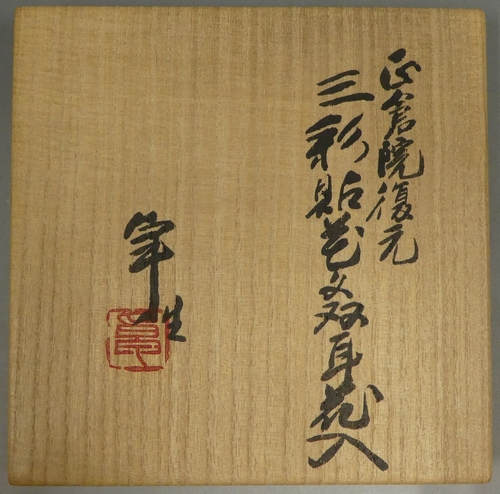 正倉院復元
三彩貼花文双耳花入